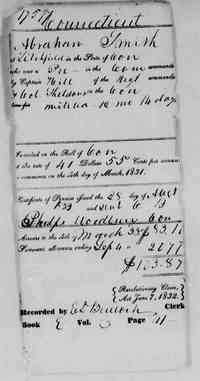 Connecticut
Abraham Smith
of Litchfield in the State of Con
who was a Pri in the Com commanded
by Captain Hill of the Regt commanded
by Col Sheldon in the Con
line for militia 12 mo 14 days
Inscribed on the Roll of Con
at the rate of 41 Dollars 55 Cents per annum
to commence on the 4th day of March, 1831.
Certificate of Pension issued the 28 day of Augt
33 and sent to
Phelps Woodbury Con
Arrears to the 4th of March 33 83.10
Semi-anl. allowance ending Sep 4 20.77
$103.87
Revolutionary Claim,
Act June 7, 1832.
Recorded by Clerk
Book E Vol. Page